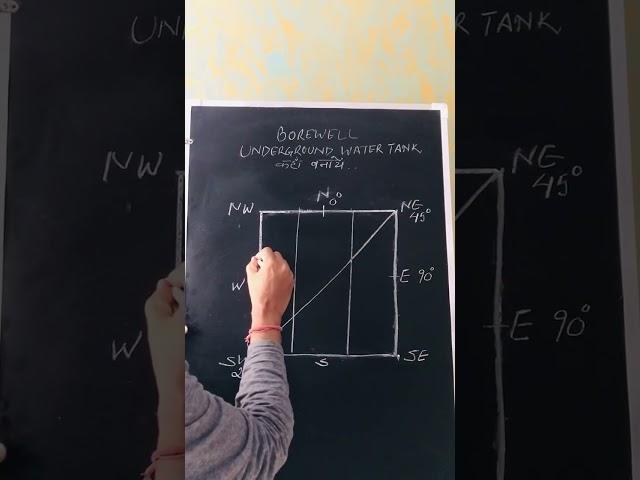 BOREWELL
UNDERGROUND WATER TANK
कहां बनायें..
N 0°
NW
NE 45°
W
E 90°
S
SE